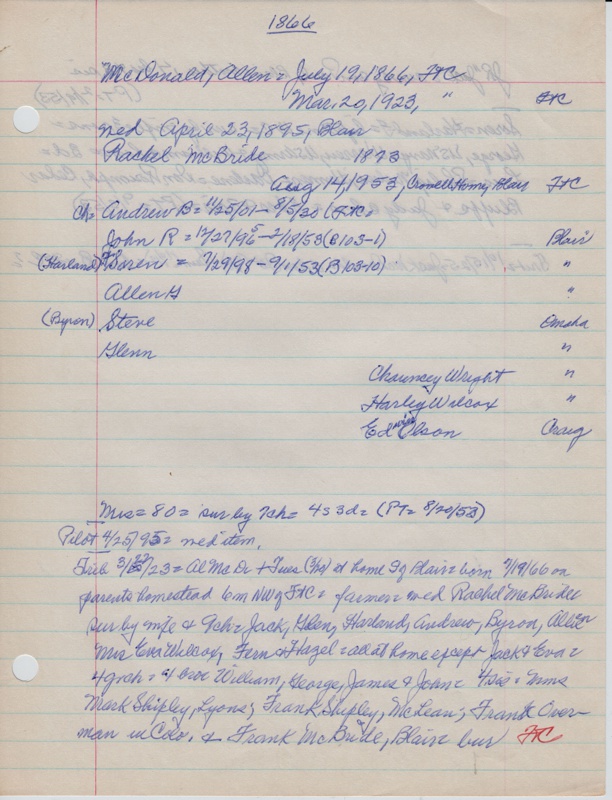 1866
McDonald, Allen = July 19, 1866, FtC
Mar. 20, 1923, " FtC
med April 23, 1895, Blair
Rachel McBride 1873
Aug 14, 1953, Crowell Home, Blair FtC
Ch = Andrew B = 11/25/01 - 8/5/20 (FtC)
John R = 12/27/96 - 2/18/53 (C103-1) Blair
(Harland) Soren = 7/29/98 - 9/1/53 (B103-10) "
Allen G "
(Byron) Steve Omaha
Glenn "
Chauncey Wright "
Harley Wilcox "
Ed Olson Craig
Mrs = 80 = sur by 7ch = 4s 3d = (PT = 8/20/53)
Pilot 4/25/95 = med item.
Trib 3/22/23 = Al McD + Tues at home Blair = born 7/19/66 on
parents homestead 6m NW of FtC = farmer = med Rachel McBride
sur by wife & 9ch = Jack, Glen, Harland, Andrew, Byron, Allen
Mrs Eva Wilcox, Fern & Hazel = all at home except Jack & Eva =
4gch = 4 bro William, George, James & John = 4sis = Mrs
Mark Shipley, Lyons; Frank Shipley, McLean; Frank Over-
man in Colo. & Frank McBride, Blair = bur FtC